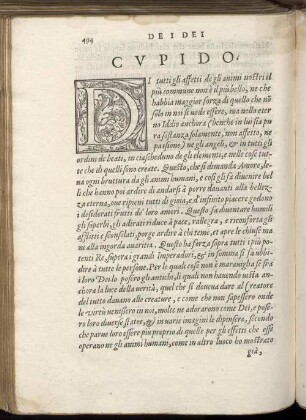 494
DE I DEI
CVPIDO.
DI tutti gli affetti de gli animi nostri il
più commune non è il più bello, ne che
habbia maggior forza di quello che nō
solo in noi si uede essere, ma nello eter
no Iddio anchora (benche in lui sia pu
ra sostanza solamente, non affetto, ne
passione) ne gli angeli, & in tutti gli
ordini de beati, in ciascheduno de gli elementi, e nelle cose tut-
te che di quelli sino create. Questo, che si dimanda Amore, le-
ua ogni bruttura da gli animi humani, e cosi gli fà diuenire bel
li che hanno poi ardire di andarsi à porre dauanti alla bellez-
za eterna, oue ripieni tutti di gioia, e d'infinito piacere godono
i desiderati frutti de' loro amori. Questo fà diuentare humili
gli superbi, gli adirati riduce à pace, rallegra, e riconforta gli
afflitti e sconsolati, porge ardire à chi teme, et apre le chiuse ma
ni alla ingorda auaritia. Questo ha forza sopra tutti i più po-
tenti Re, supera i grandi Imperadori, & in somma si fà ubbi-
dire à tutte le persone. Per la qual cosa non è marauiglia se frà
i loro Dei lo posero gli antichi, di quali non hauendo uista an-
chora la luce della verità, quel che si doueua dare al Creatore
del tutto dauano alle creature, e come che non sapessero onde
le virtù uenissero in noi, molte ne adorarono come Dei, e pose-
ro loro diuerse statoe, & in uarie imagini le dipinsero, secondo
che parue loro essere piu proprio di quelle per gli effetti che esse
operano ne gli animi humani, come in altro luoco hò mostrato
già,